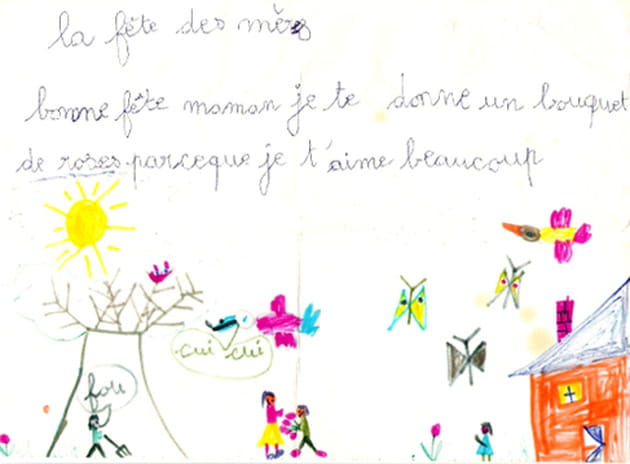 la fête des mères
bonne fête maman je te donne un bouquet
de roses parceque je t'aime beaucoup
cui cui
fou